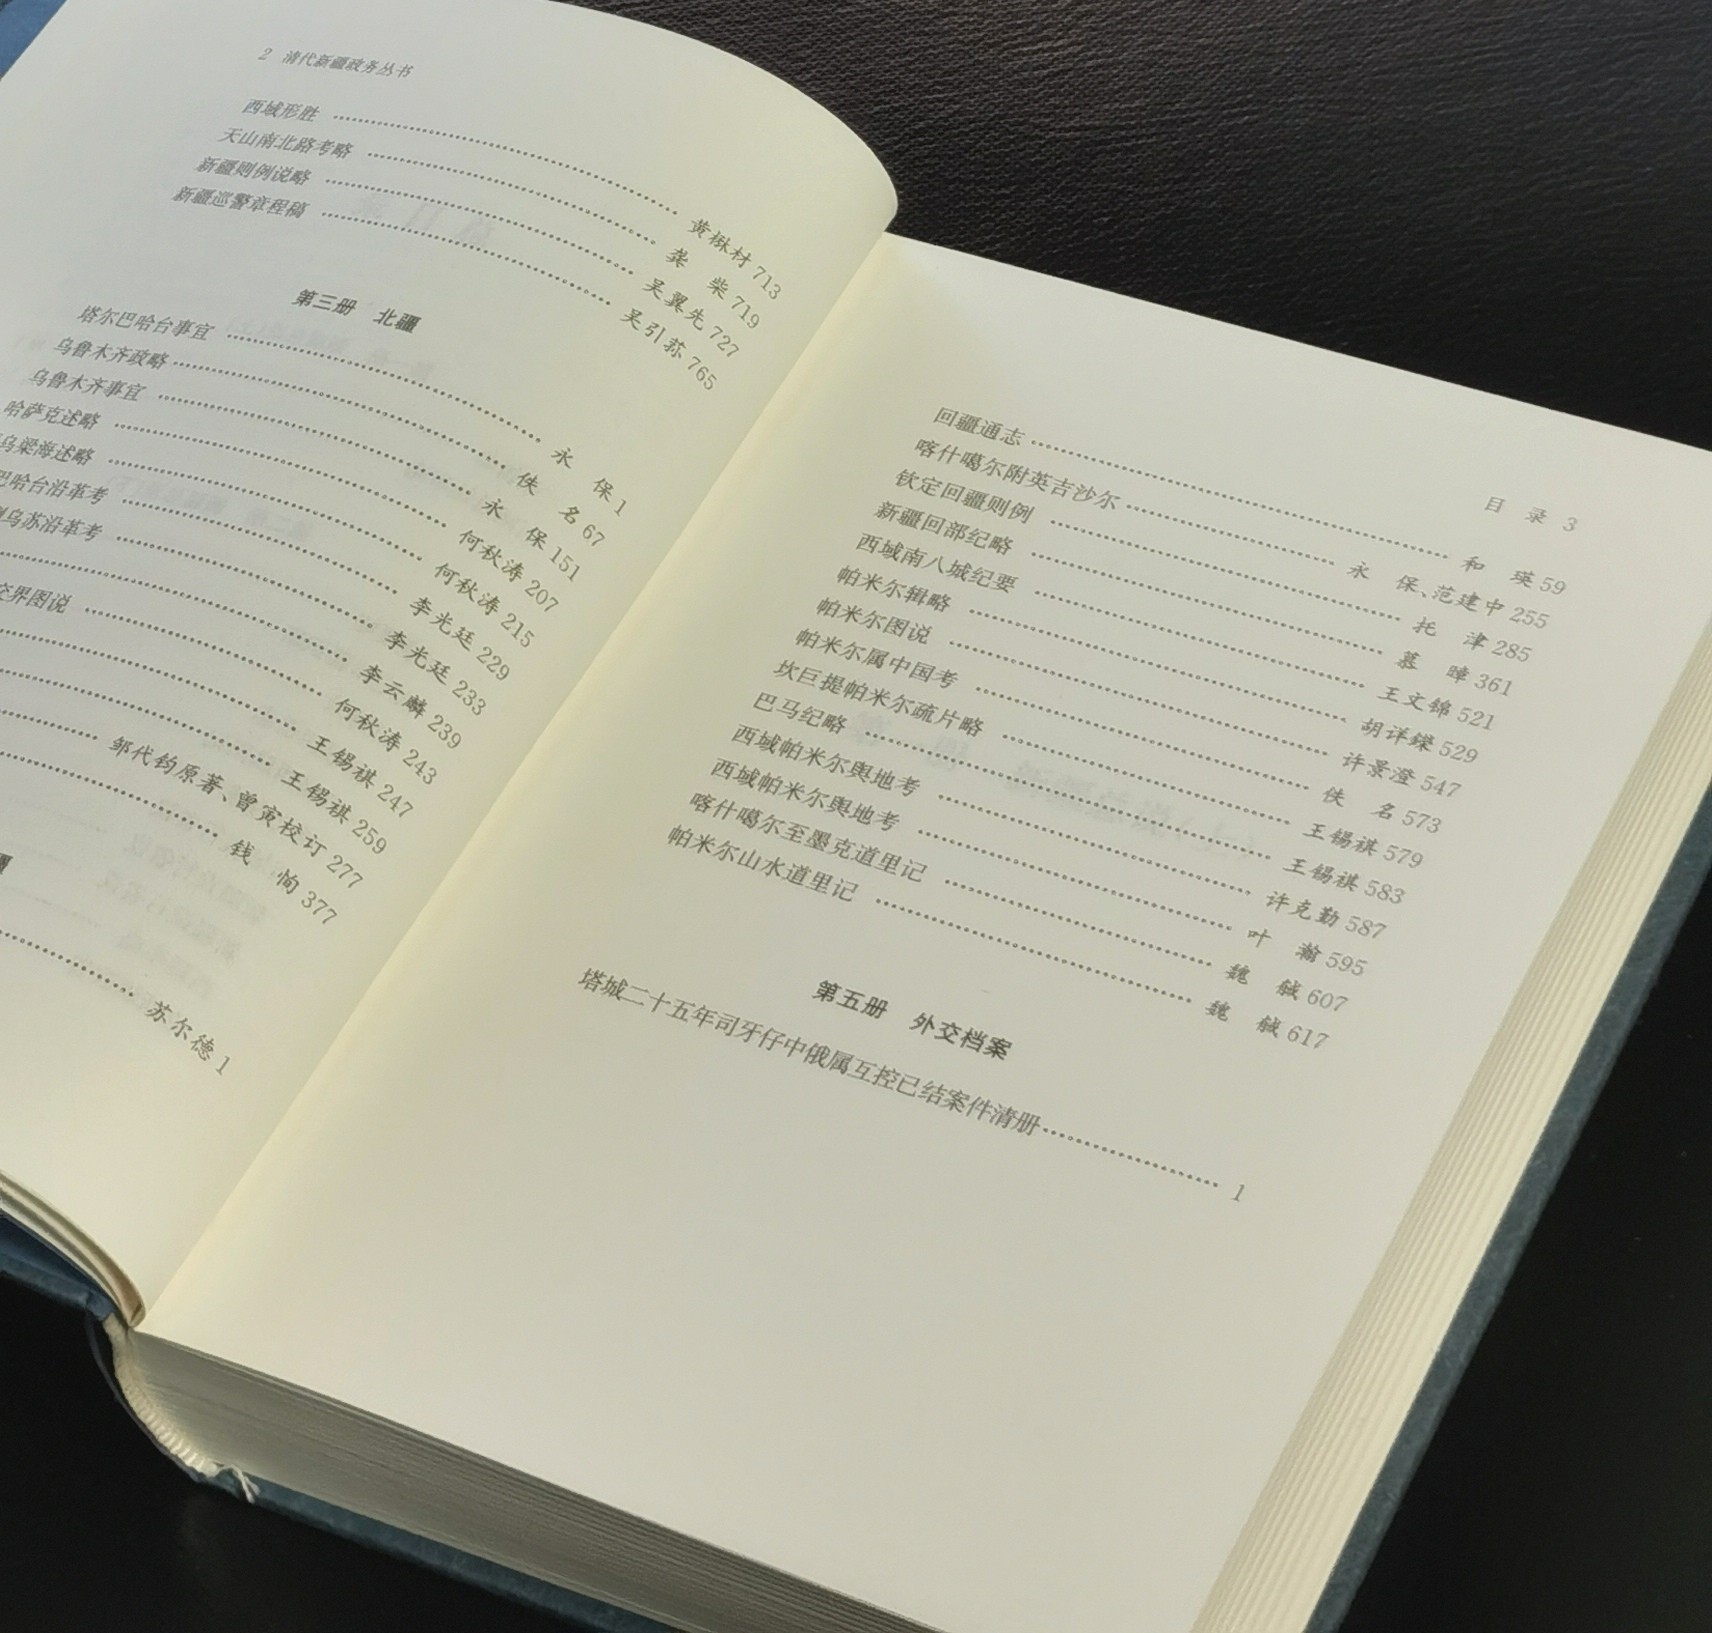 2 清代新疆政务丛书
西域形胜 …… 黄楙材 713
天山南北路考略 …… 龚 柴 719
新疆则例说略 …… 吴翼先 727
新疆巡警章程稿 …… 吴引荪 765
第三册 北疆
塔尔巴哈台事宜 …… 永 保 1
乌鲁木齐政略 …… 佚 名 67
乌鲁木齐事宜 …… 永 保 151
哈萨克述略 …… 何秋涛 207
乌梁海述略 …… 何秋涛 215
巴哈台沿革考 …… 李光廷 229
乌苏沿革考 …… 李光廷 233
…… 李云麟 239
交界图说 …… 何秋涛 243
…… 王锡祺 247
…… 王锡祺 259
…… 邹代钧原著、曾寅校订 277
…… 钱 恂 377
…… 苏尔德 1
目 录 3
回疆通志 …… 和 瑛 59
喀什噶尔附英吉沙尔 …… 永 保、范建中 255
钦定回疆则例 …… 托 津 285
新疆回部纪略 …… 慕 暲 361
西域南八城纪要 …… 王文锦 521
帕米尔辑略 …… 胡详鑅 529
帕米尔图说 …… 许景澄 547
帕米尔属中国考 …… 佚 名 573
坎巨提帕米尔疏片略 …… 王锡祺 579
巴马纪略 …… 王锡祺 583
西域帕米尔舆地考 …… 许克勤 587
西域帕米尔舆地考 …… 叶 瀚 595
喀什噶尔至墨克道里记 …… 魏 㦿 607
帕米尔山水道里记 …… 魏 㦿 617
第五册 外交档案
塔城二十五年司牙仔中俄属互控已结案件清册 …… 1